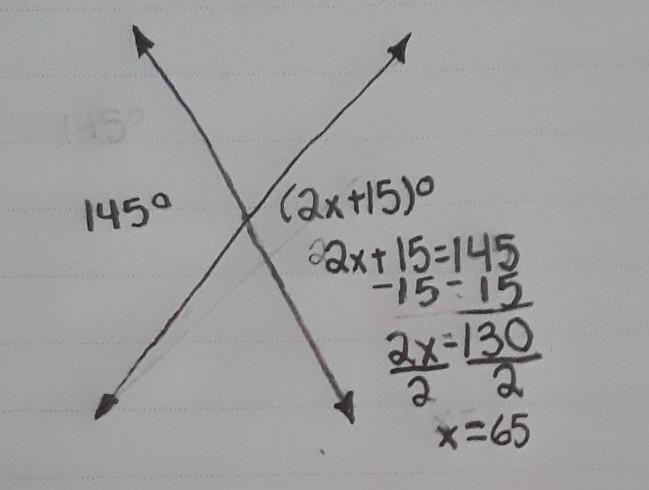 145°
145° (2x+15)°
2x+15=145
-15 - 15
2x=130
2 2
x=65